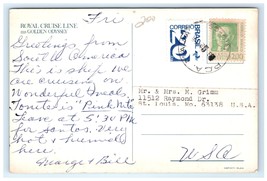 Fri
ROYAL CRUISE LINE
GOLDEN ODYSSEY
Greetings from
South America
This is ship we
are cruising on
Wonderful meals
Tonite is "Pink Nite"
Leave at 5:30 PM
for Santos. Very
hot & humid
here
George & Bill
CORREIO
BRASIL
Mr. & Mrs. H. Grimm
11512 Raymond Dr.
St. Louis, Mo. 63138 U.S.A.
USA